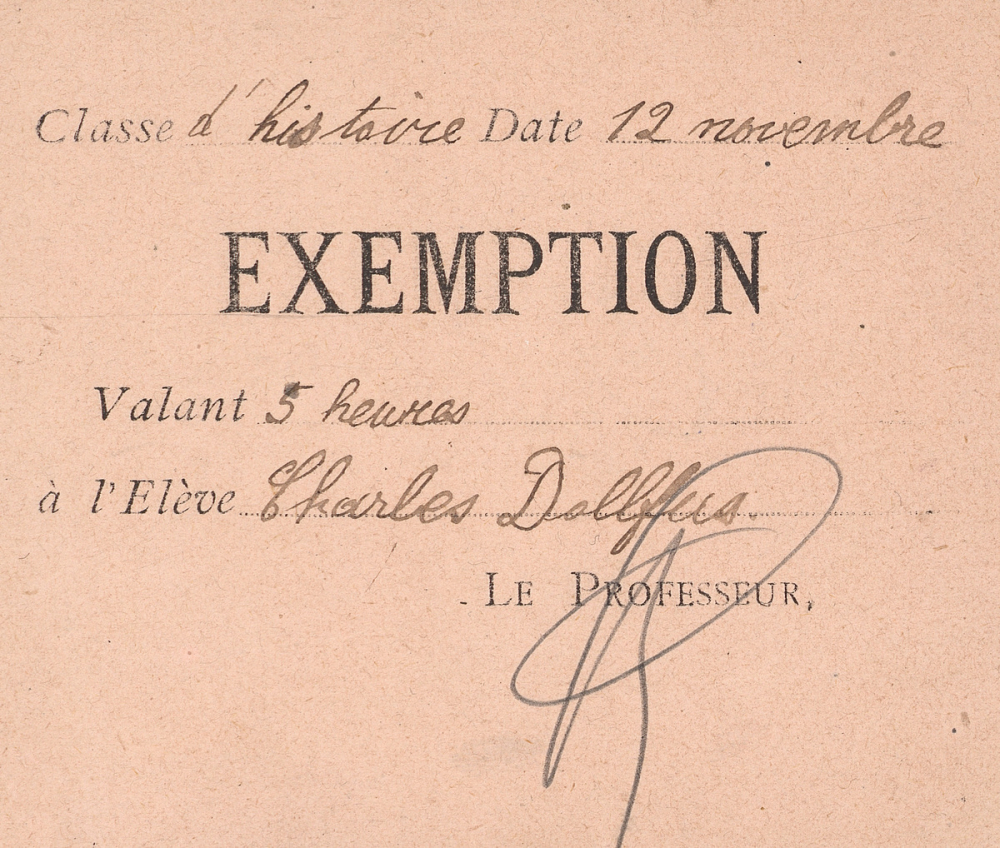 Classe d'histoire Date 12 novembre
EXEMPTION
Valant 5 heures
à l'Elève Charles Dollfus.
LE PROFESSEUR,